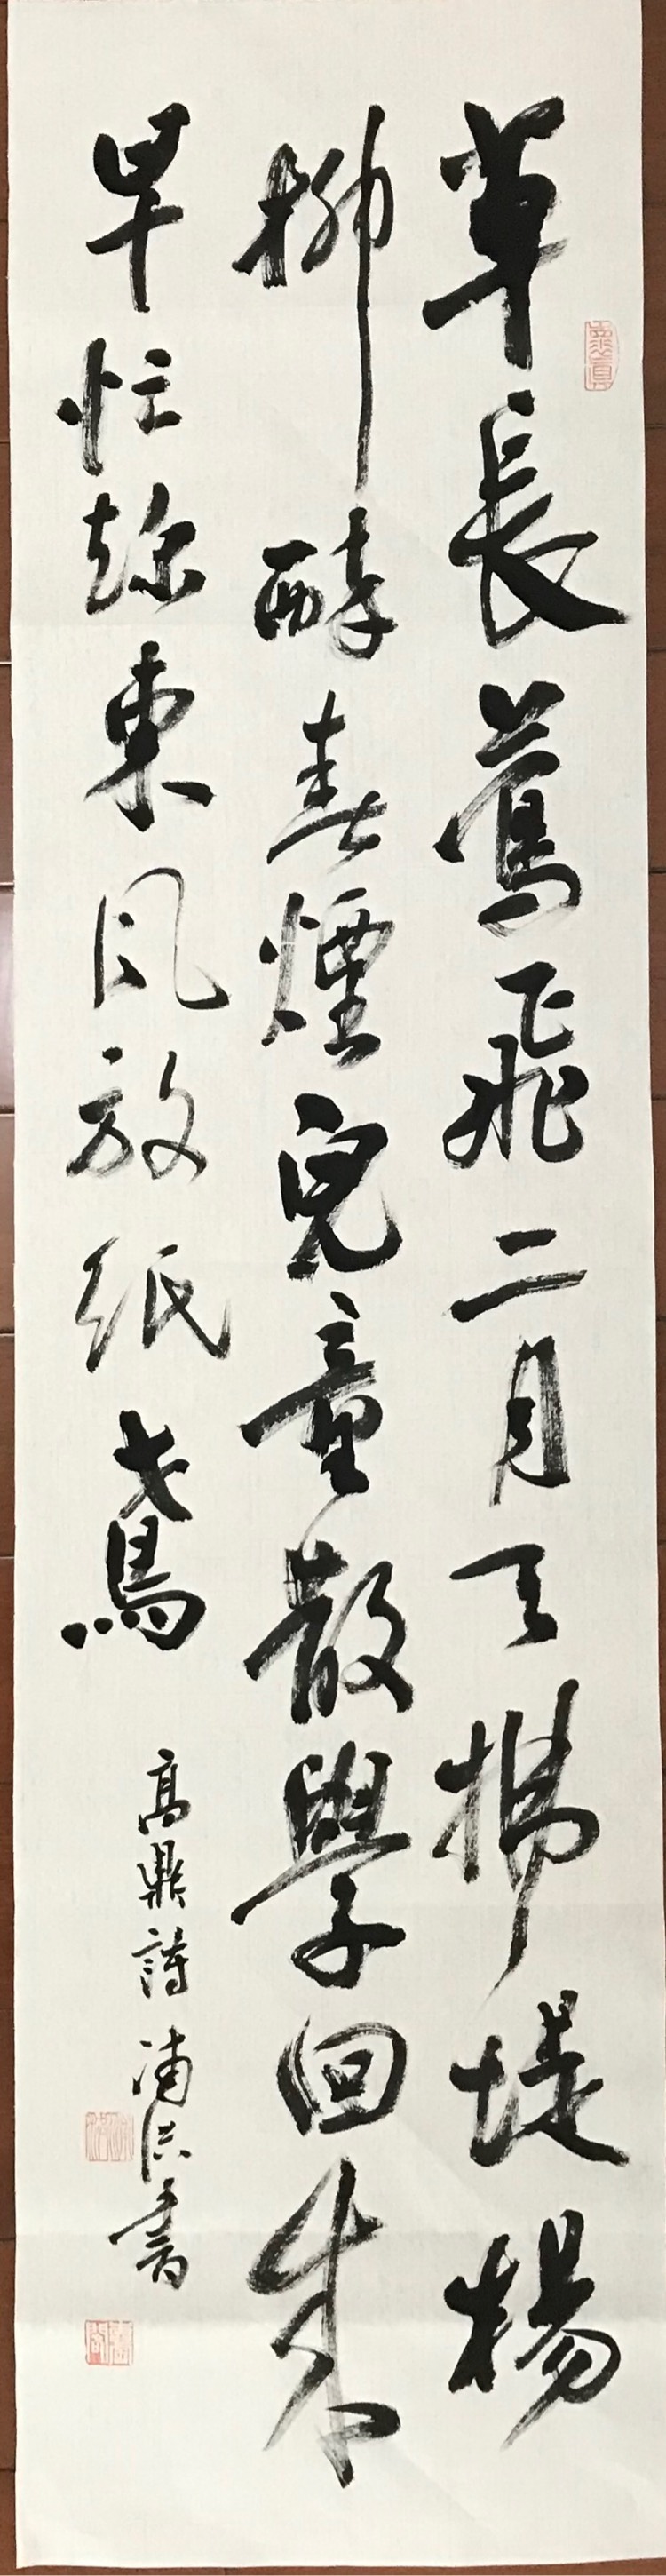 草長鶯飛二月天拂堤楊
柳醉春煙兒童散學回來
早忙趁東風放紙鳶
高鼎詩 書